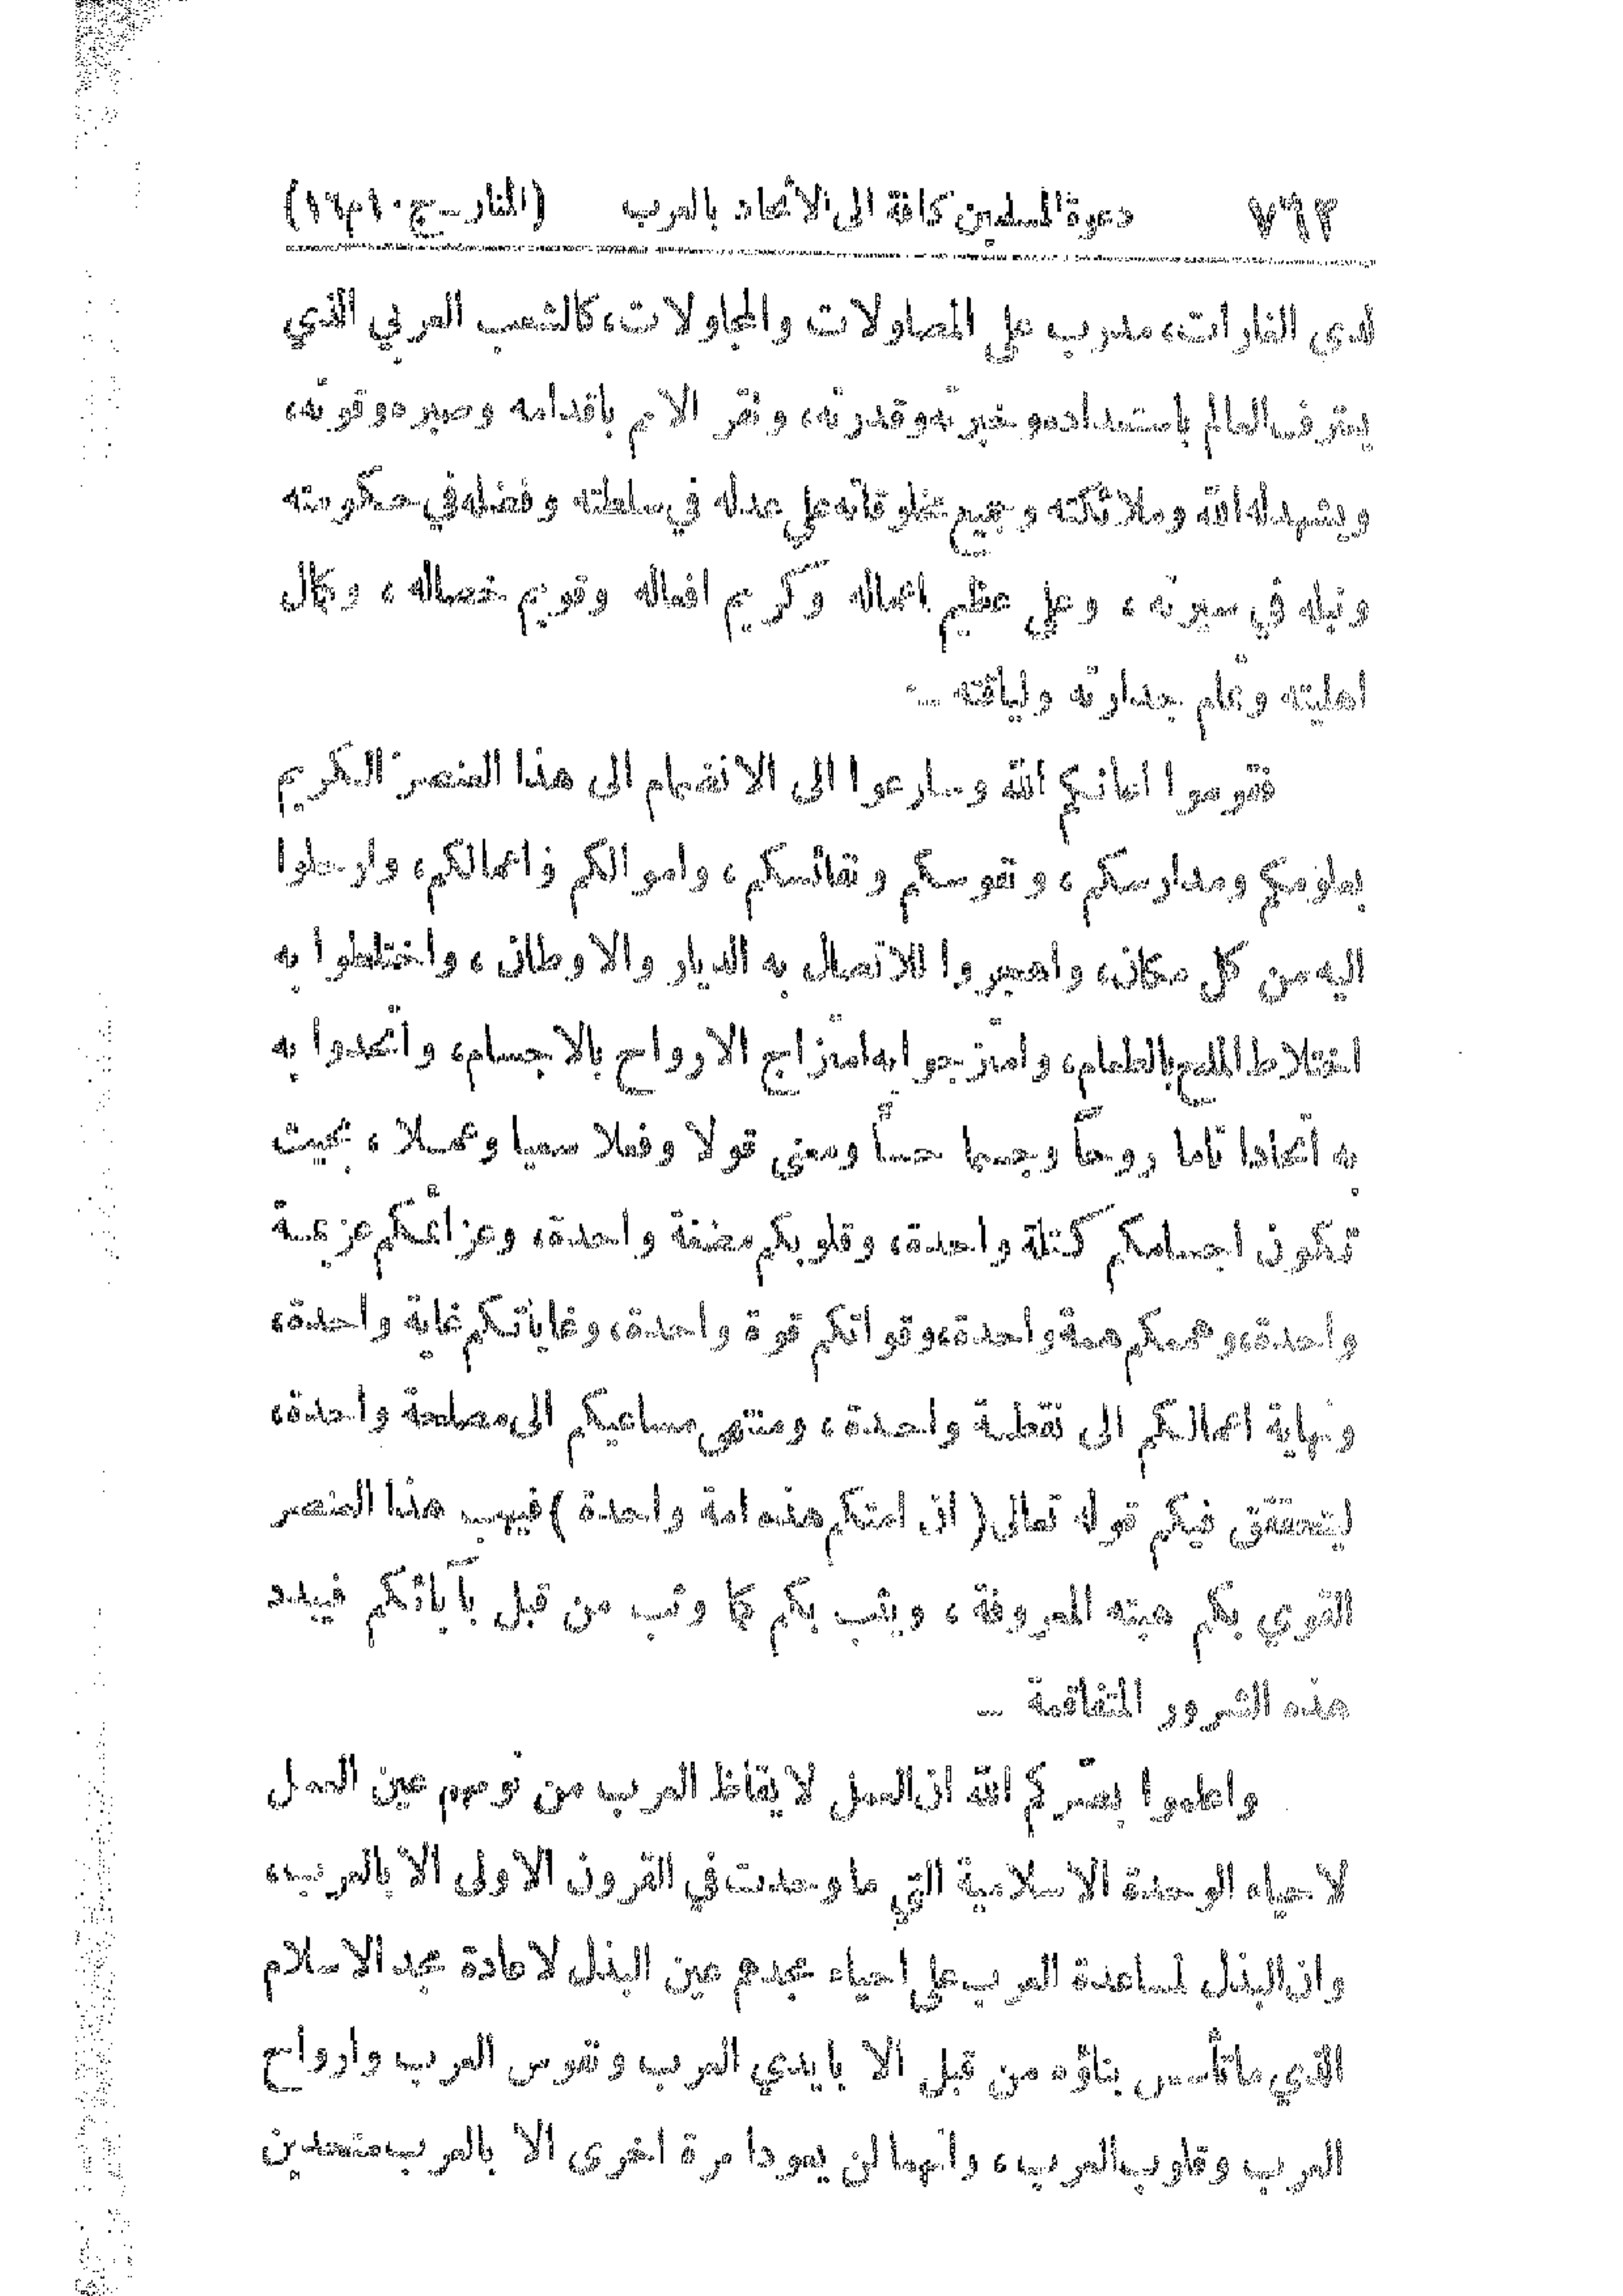 ٧٦٢ دعوة المسلمين كافة الى الاتحاد بالعرب (المنار ـ ج١٠م١٦)
لدى الغارات، مدرب على المصاولات والمجاولات، كالشعب العربي الذي
يعترف العالم باستعداده وخبرته وقدرته، وتقر الامم باقدامه وصبره وقوته،
ويشهد له الله وملائكته وجميع مخلوقاته على عدله في سلطته وفضله في حكومته
ونبله في سيرته، وعلى عظيم اعماله وكريم افعاله وقويم خصاله، وكمال
اهليته وتمام جدارته ولياقته ـ
فقوموا اعانكم الله وسارعوا الى الانضمام الى هذا العنصر الكريم
بعلومكم ومدارسكم، ونفوسكم ونفائسكم، واموالكم واعمالكم، وارحلوا
اليه من كل مكان، واهجروا للاتصال به الديار والاوطان، واختلطوا به
اختلاط الملح بالطعام، وامتزجوا به امتزاج الارواح بالاجسام، واتحدوا به
به اتحادا تاما روحاً وجسما حساً ومعنى قولا وفعلا سعيا وعملا، بحيث
تكون اجسامكم كتلة واحدة، وقلوبكم مضغة واحدة، وعزائمكم عزيمة
واحدة، وهممكم همة واحدة، وقواتكم قوة واحدة، وغاياتكم غاية واحدة،
ونهاية اعمالكم الى نقطة واحدة، ومنتهى مساعيكم الى مصلحة واحدة،
ليتحقق فيكم قوله تعالى (ان امتكم هذه امة واحدة) فيهب هذا العنصر
القوي بكم هبته المعروفة، ويثب بكم كما وثب من قبل بآبائكم فيبدد
هذه الشرور المتفاقمة ـ
واعلموا بصّركم الله ان العمل لايقاظ العرب من نومهم عين العمل
لاحياء الوحدة الاسلامية التي ما وجدت في القرون الاولى الا بالعرب،
وان البذل لمساعدة العرب على احياء مجدهم عين البذل لاعادة مجد الاسلام
الذي ما تأسس بناؤه من قبل الا بايدي العرب ونفوس العرب وارواح
العرب وقلوب العرب، وانهما لن يعودا مرة اخرى الا بالعرب متحدين